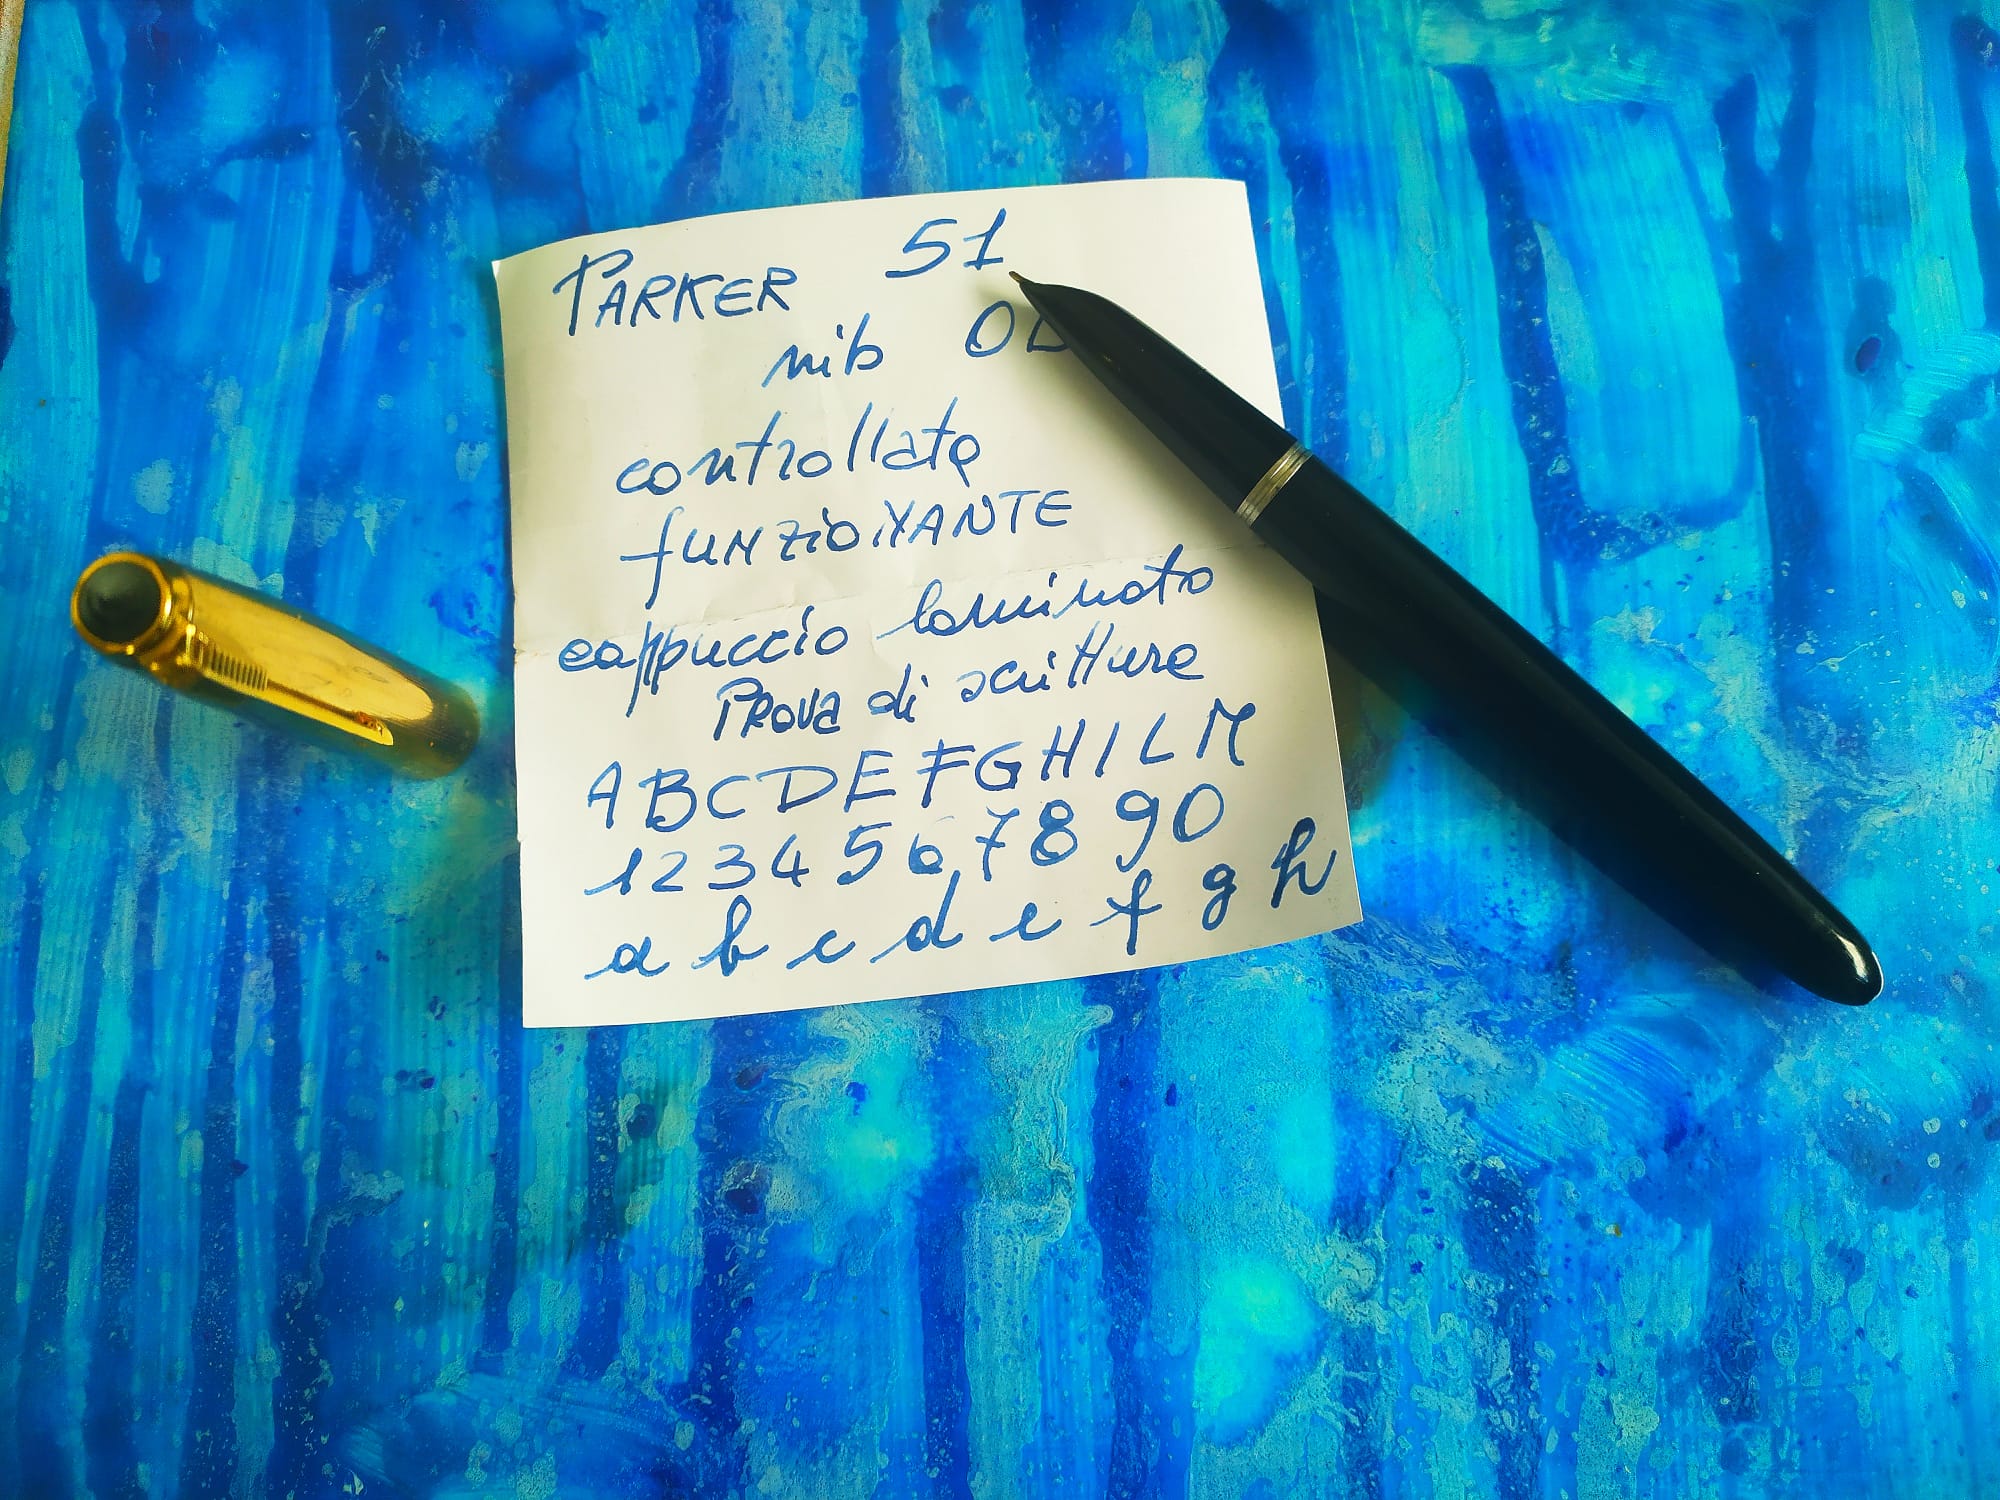 PARKER 51
nib
controllata
funzioNANTE
cappuccio laminato
Prova di scrittura
A B C D E F G H I L M
1 2 3 4 5 6 7 8 9 0
a b c d e f g h